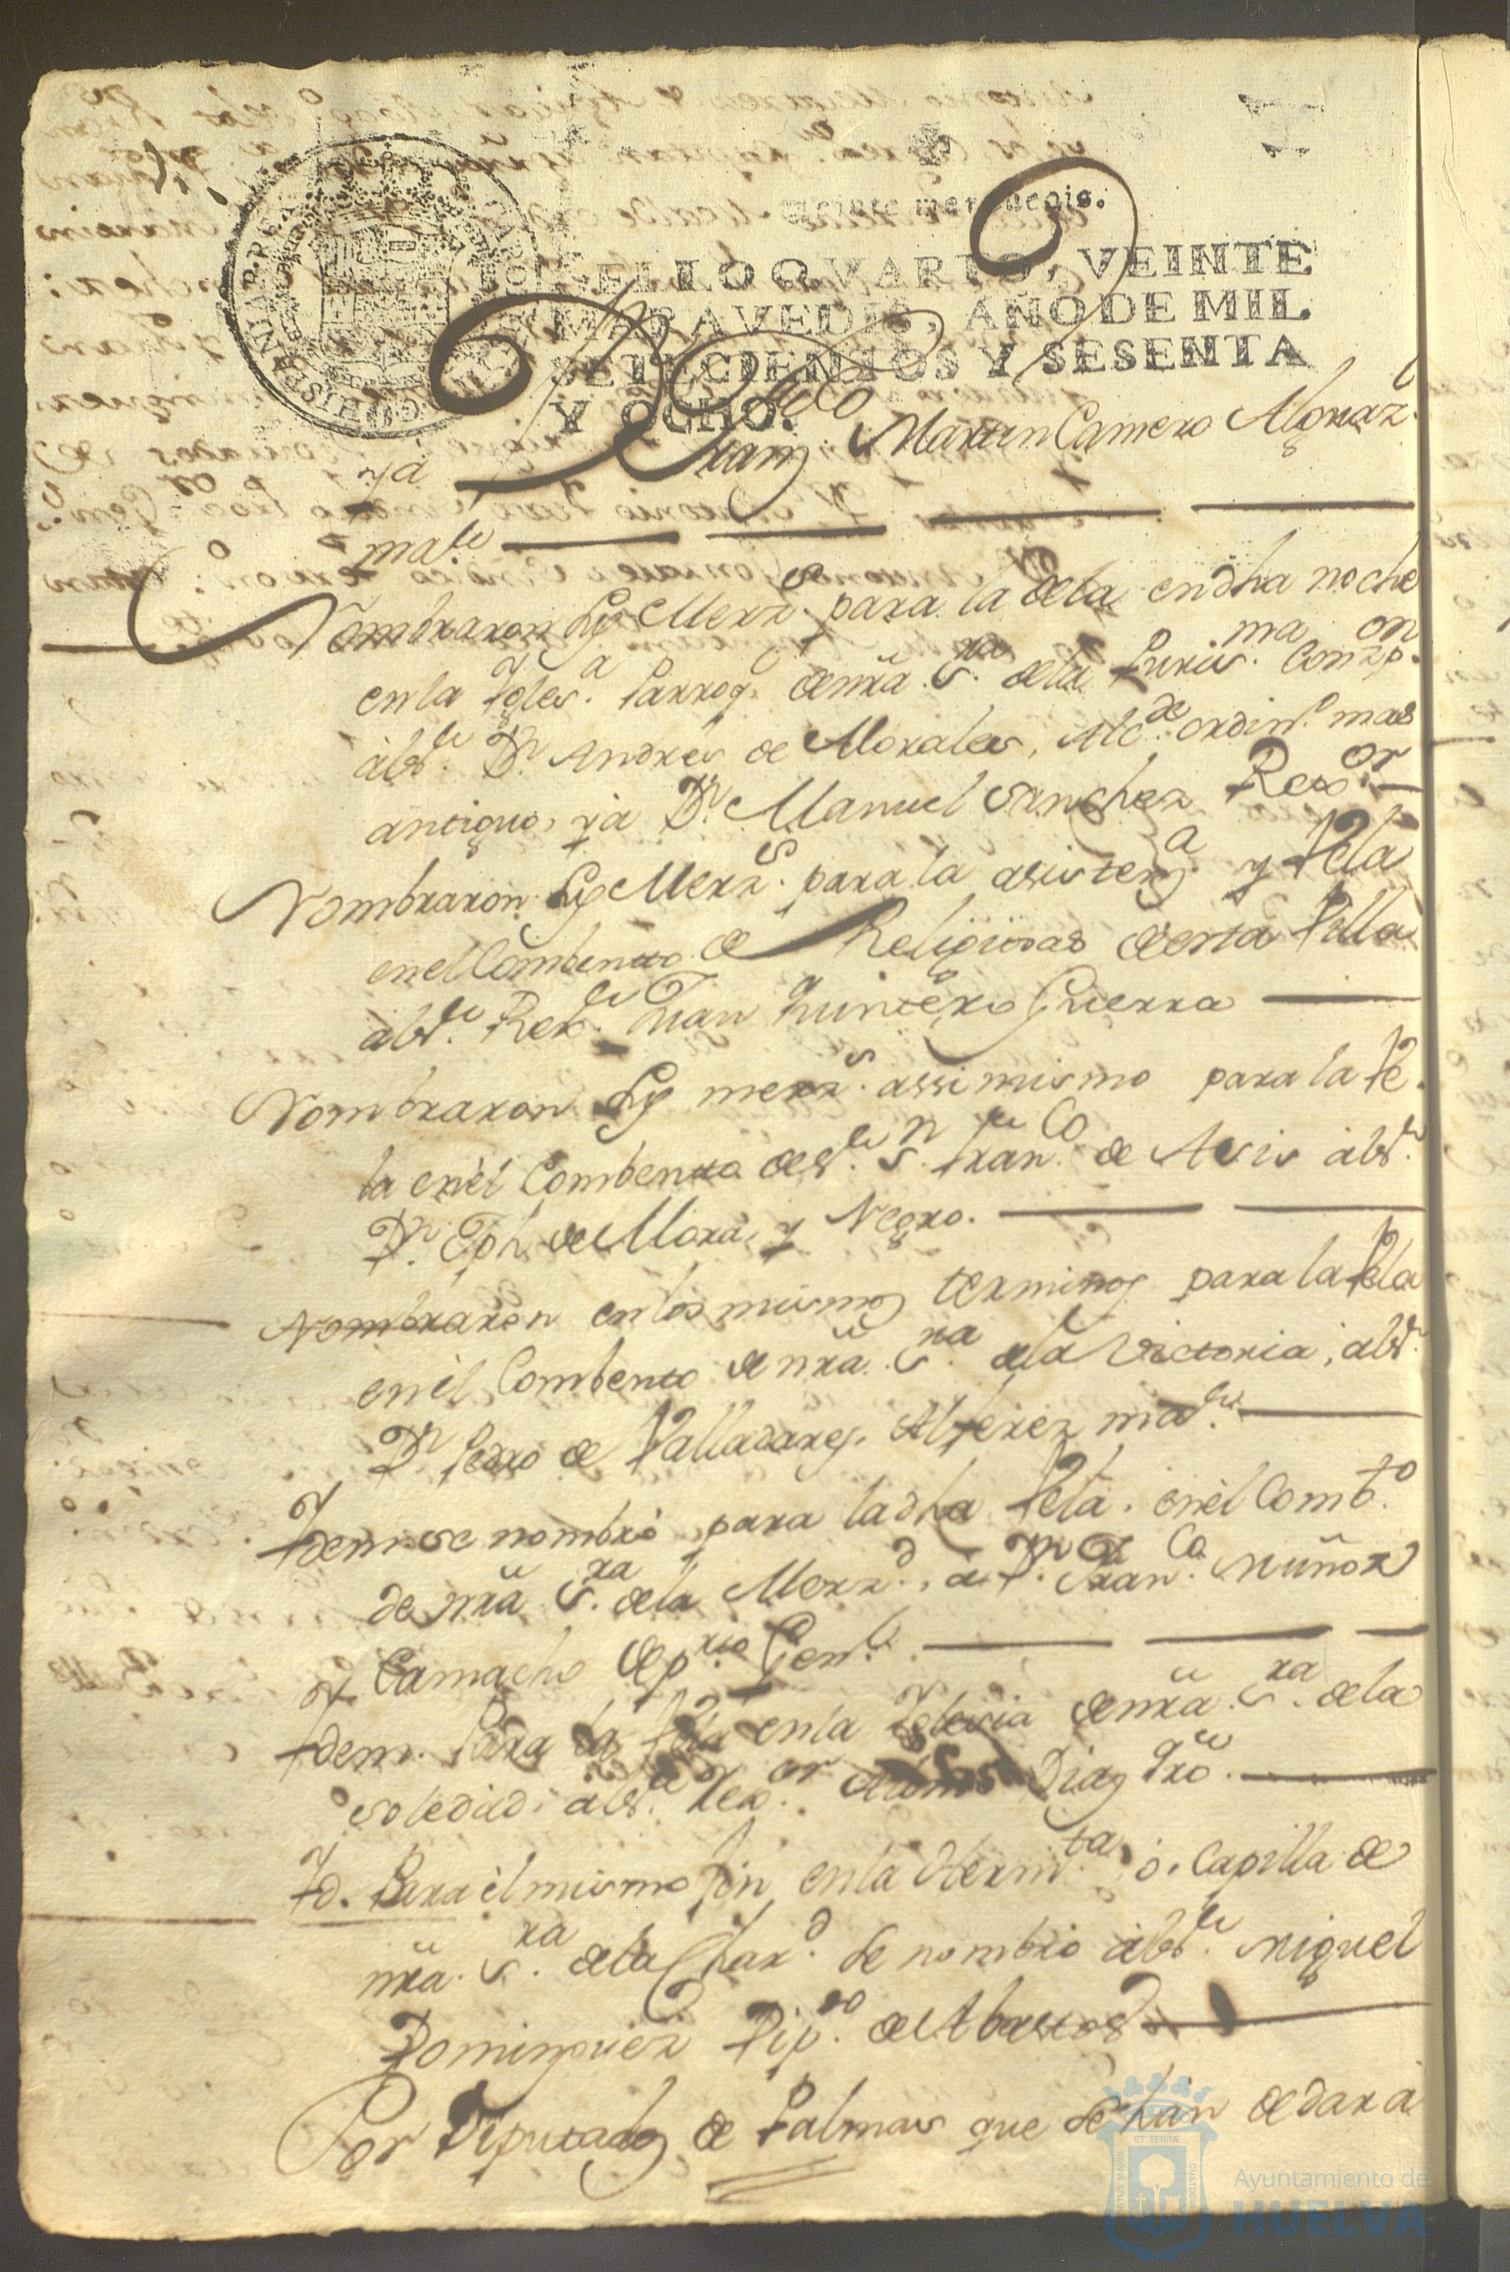 Veinte maravedis.
SELLO QVARTO, VEINTE
MARAVEDIS, AÑO DE MIL
SETECIENTOS Y SESENTA
Y OCHO.
y a Juan Martin Camero Alguaz.l
mar.
Nombraron Ss Merz.s para la de la en dha noche
en la Igles.a Parroq.l de nrã S.ra de la Puris.ma Conzp.on
àl s.r D.n Andres de Morales, Alc.de ordin.o mas
antiguo, y a D.n Manuel Sanchez Rexo.or
Nombraron Ss Merz.s para la asistenz.a y Vela
en el Combento de Religiosas de esta Villa
àl s.r Rex.r Juan Quintero Guerra
Nombraron Ss merz.s assimismo para la Ve-
la en èl Combento de s.r S.n Fran.co de Asis àl s.r
D.n Jph de Mora, y Negro.
Nombraron en los mismos terminos para la Vela
en èl Combento de nrã S.ra de la Victoria, àl s.r
D.n Pedro de Valladares, Alferez ma.r
Idem se nombrò para la dha Vela en èl Comb.to
de nrã S.ra de la Merz.d, à D.n Fran.co Muñoz
Camacho Dep.rio Gen.l
Idem. Para la Vela en la Iglesia de nrã S.ra de la
Soledad, àl s.r Rex.or Alonso Diaz
Id. Para èl mismo fin en la Herm.ta, ò Capilla de
nrã S.ra de la Char.d se nombrò àl s.r Miguel
Dominguez Dip.do de Abastos
Por Diputados de Palmas que se hàn de dar à
Ayuntamiento de
HUELVA